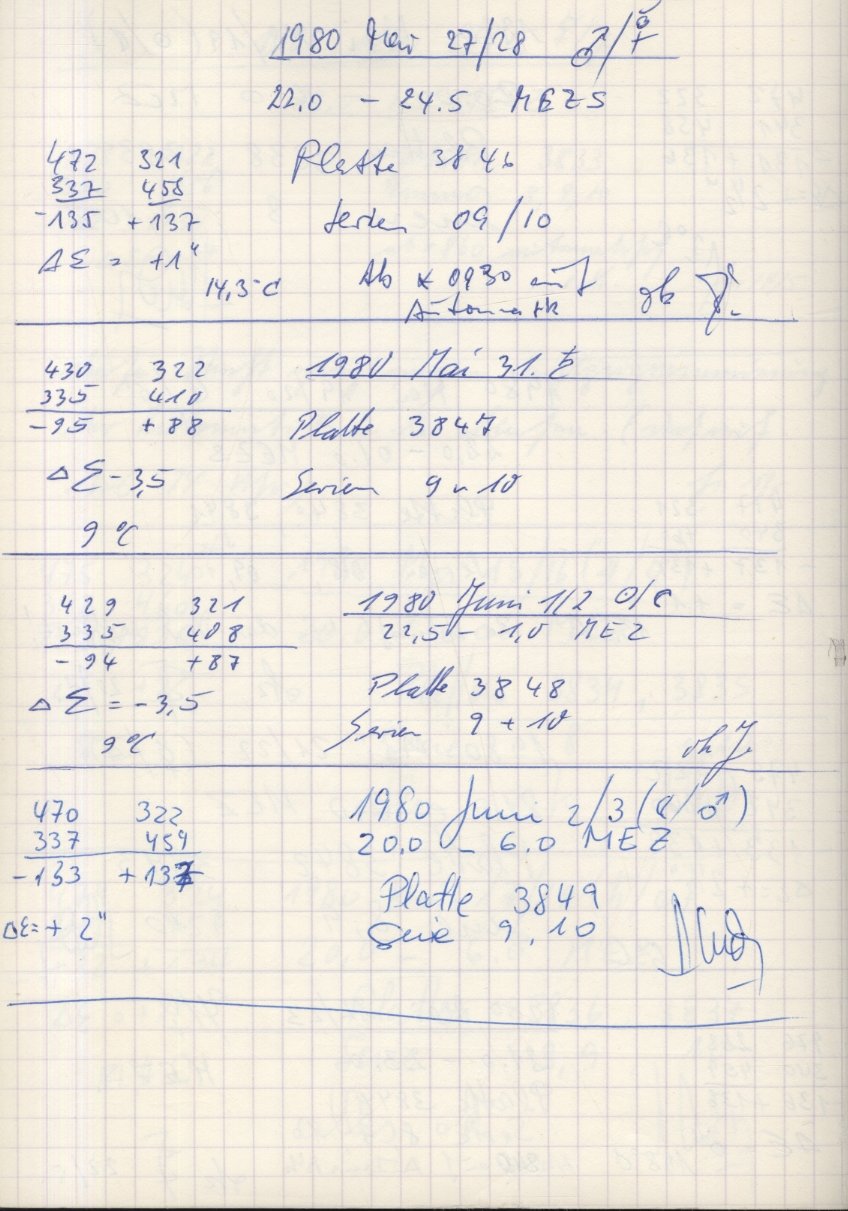 1980 Mai 27/28 ♂/☿
22.0 – 24.5 MEZS
472 321 Platte 3846
337 458
-135 +137 Serien 09/10
ΔΣ = +1"
14,3°C Ab * 0930 auf
Automatik ok
430 322 1980 Mai 31.
335 410
-95 +88 Platte 3847
ΔΣ -3,5 Serien 9 u 10
9 °C
429 321 1980 Juni 1/2 ☉/☾
335 408 22,5 – 1,0 MEZ
-94 +87
ΔΣ = -3,5 Platte 3848
9°C Serien 9 + 10
ok J.
470 322 1980 Juni 2/3 (☾/♂)
337 459 20.0 – 6.0 MEZ
-133 +137
Platte 3849
ΔΣ = + 2" Serie 9, 10